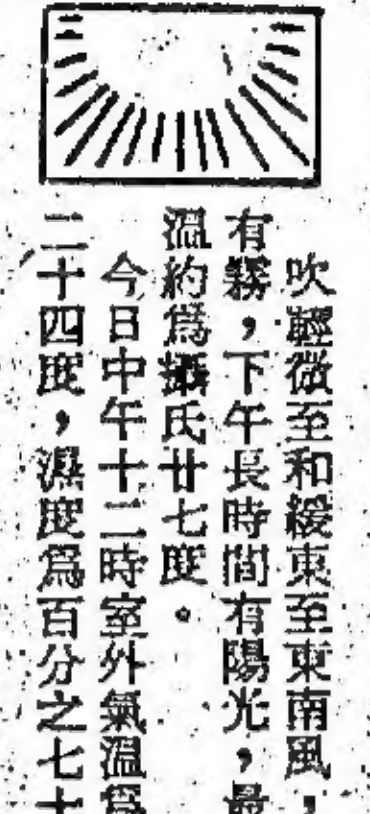 吹輕微至和緩東至東南風，
有霧，下午長時間有陽光，最
溫約爲攝氏廿七度。
今日中午十二時室外氣溫爲
二十四度，濕度爲百分之七十